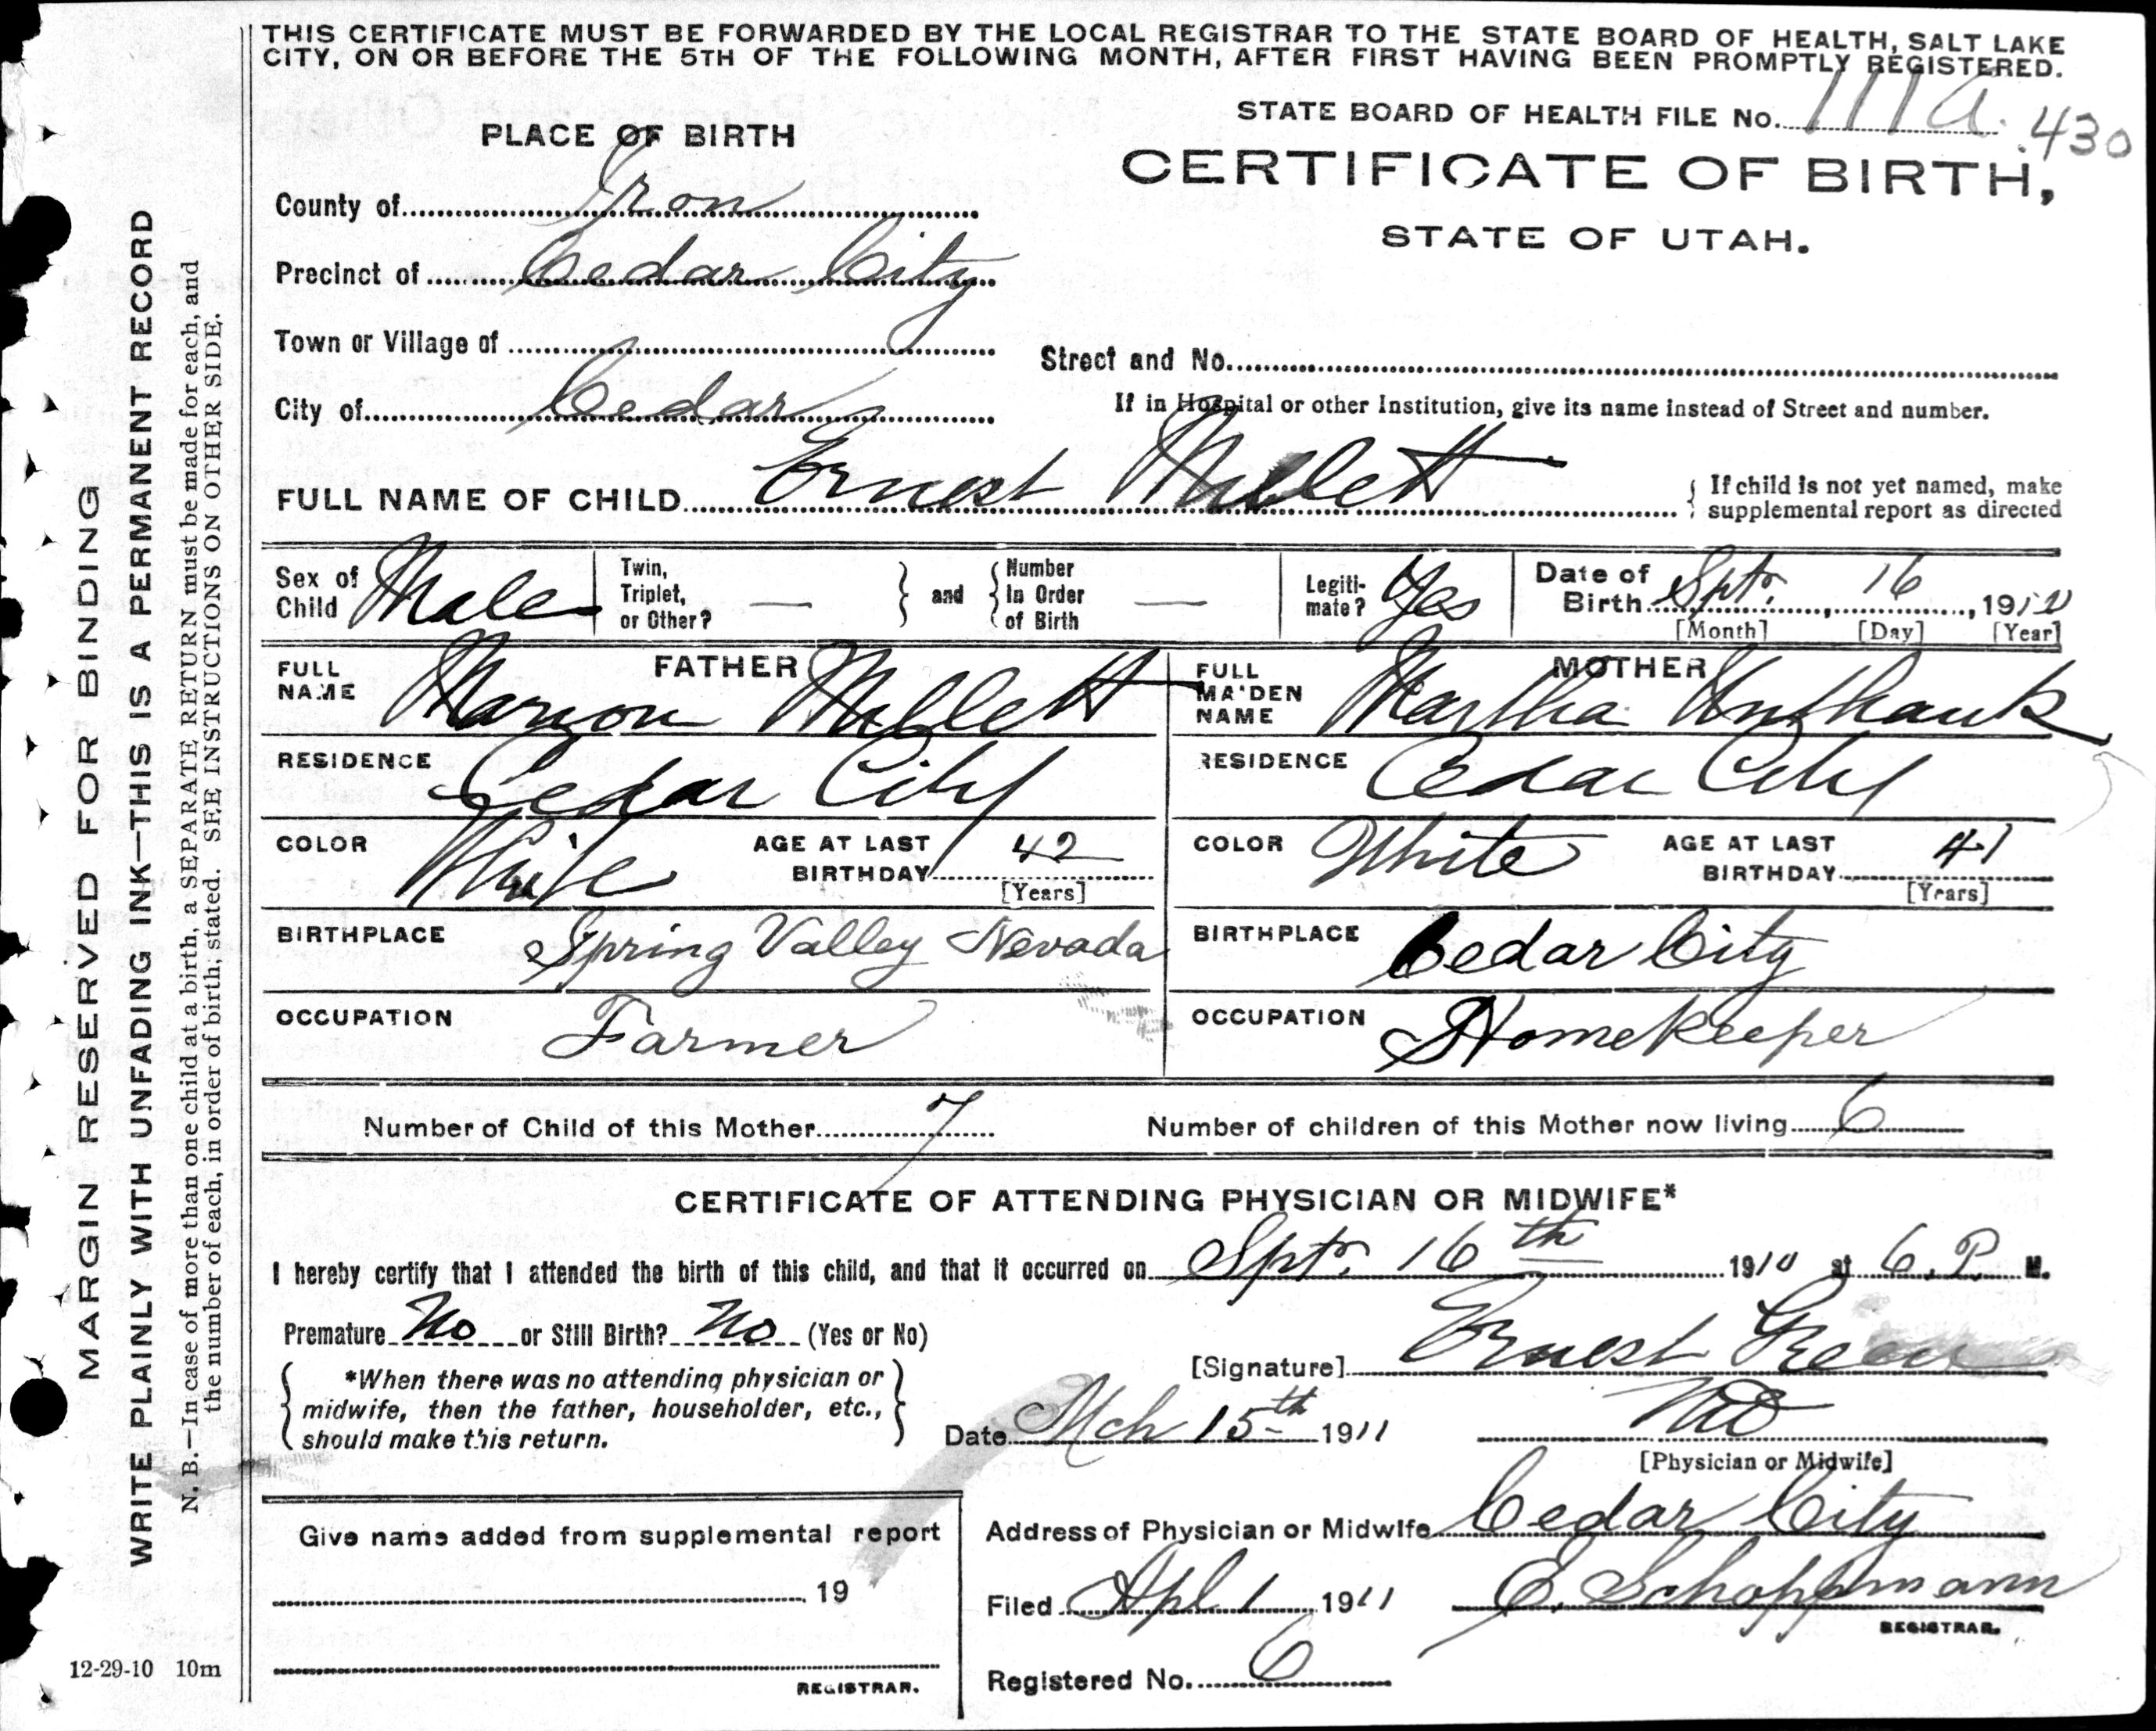 THIS CERTIFICATE MUST BE FORWARDED BY THE LOCAL REGISTRAR TO THE STATE BOARD OF HEALTH, SALT LAKE
CITY, ON OR BEFORE THE 5TH OF THE FOLLOWING MONTH, AFTER FIRST HAVING BEEN PROMPTLY REGISTERED.
STATE BOARD OF HEALTH FILE No. 111a. 430
PLACE OF BIRTH
CERTIFICATE OF BIRTH,
STATE OF UTAH.
County of Iron
Precinct of Cedar City
Town or Village of
Street and No.
City of Cedar
If in Hospital or other Institution, give its name instead of Street and number.
FULL NAME OF CHILD Ernest Millett
If child is not yet named, make
supplemental report as directed
Sex of Child Male
Twin, Triplet, or Other? —
and
Number In Order of Birth —
Legiti-mate? Yes
Date of Birth Spt. 16, 1910
[Month] [Day] [Year]
FATHER
FULL NAME Maryon Millett
MOTHER
FULL MAIDEN NAME Martha Unthank
RESIDENCE Cedar City
RESIDENCE Cedar City
COLOR White
AGE AT LAST BIRTHDAY 42
[Years]
COLOR White
AGE AT LAST BIRTHDAY 41
[Years]
BIRTHPLACE Spring Valley Nevada
BIRTHPLACE Cedar City
OCCUPATION Farmer
OCCUPATION Homekeeper
Number of Child of this Mother 7
Number of children of this Mother now living 6
CERTIFICATE OF ATTENDING PHYSICIAN OR MIDWIFE*
I hereby certify that I attended the birth of this child, and that it occurred on Spt. 16th 1910 at 6. P. M.
Premature No or Still Birth? No (Yes or No)
[Signature] Ernest Green
*When there was no attending physician or
midwife, then the father, householder, etc.,
should make this return.
Date Mch 15th 1911
MD
[Physician or Midwife]
Give name added from supplemental report
Address of Physician or Midwife Cedar City
19
Filed Apl 1 1911 E. Schoppmann
REGISTRAR.
REGISTRAR.
Registered No. 6
12-29-10 10m
MARGIN RESERVED FOR BINDING
WRITE PLAINLY WITH UNFADING INK—THIS IS A PERMANENT RECORD
N. B.—In case of more than one child at a birth, a SEPARATE RETURN must be made for each, and
the number of each, in order of birth, stated. SEE INSTRUCTIONS ON OTHER SIDE.